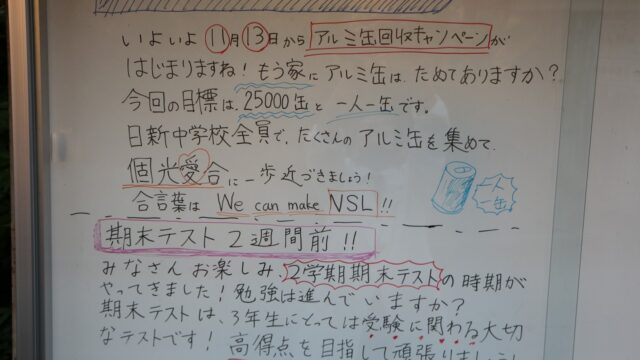 いよいよ 11月13日から アルミ缶回収キャンペーンが
はじまりますね! もう家にアルミ缶は、ためてありますか?
今回の目標は、25000缶と 一人一缶です。
日新中学校全員で、たくさんのアルミ缶を集めて、
個光愛合に一歩近づきましょう!
合言葉は We can make NSL!!
一人一缶
期末テスト2週間前!!
みなさんお楽しみ、2学期期末テストの時期が
やってきました!勉強は進んでいますか?
期末テストは、3年生にとっては受験に関わる大切
なテストです! 高得点を目指して頑張りましょう